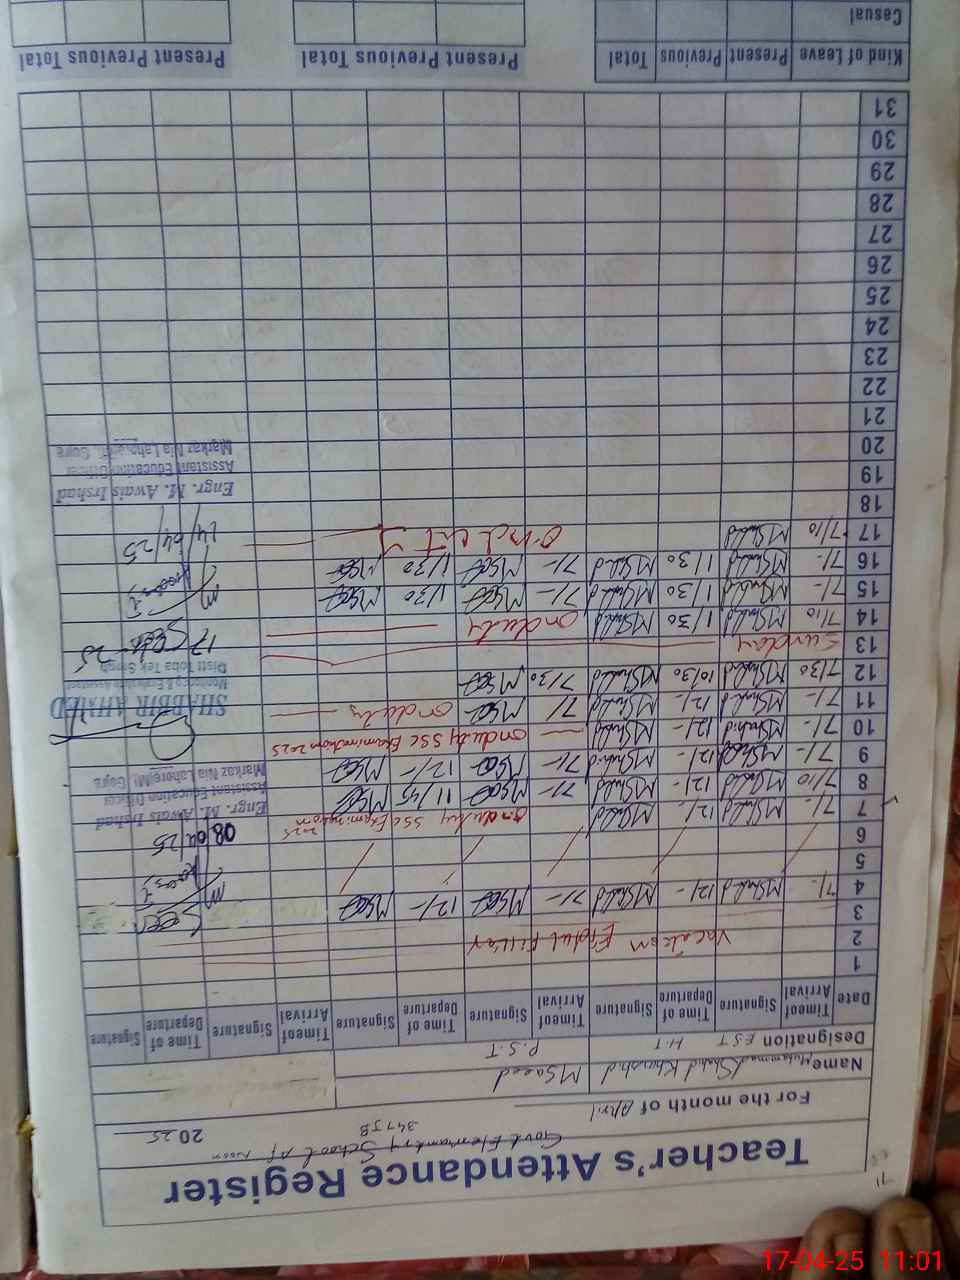 Teacher's Attendance Register
Govt Elementary School Af noon
347 JB
For the month of April 2025
Name Muhammad Shahid Khurshid M Saeed
Designation E.S.T H.T P.S.T
Date Timeof Arrival Signature Time of Departure Signature Timeof Arrival Signature Time of Departure Signature Timeof Arrival Signature Time of Departure Signature
1
2 Vacation Eidul Fittar
3
4 7/- MShahid 12/- MShahid 7/- 12/-
5
6
7 7/- MShahid 12/- MShahid onduty SSC Examination 2025
8 7/10 MShahid 12/- MShahid 7/- 11/45
9 7/- MShahid 12/- MShahid 7/- 12/-
10 7/- MShahid 12/- MShahid onduty SSC Examination 2025
11 7/- MShahid 12/- MShahid 7/- onduty
12 7/30 MShahid 10/30 MShahid 7/30
13 Sunday
14 7/10 MShahid 11/30 MShahid onduty
15 7/- MShahid 11/30 MShahid 7/- 11/30
16 7/- MShahid 11/30 MShahid 7/- 11/30
17 7/10 MShahid
18
19
20
21
22
23
24
25
26
27
28
29
30
31
Seen
08/04/25
Engr. M. Awais Irshad
Assistant Education Officer
Markaz Nia Lahore(M), Gojra
SHABBIR AHMED
Monitoring & Evaluation Assistant
Distt Toba Tek Singh
14/04/25
Engr. M. Awais Irshad
Assistant Education Officer
Markaz Nia Lahore(M), Gojra
Kind of Leave Present Previous Total Present Previous Total Present Previous Total
Casual
17-04-25 11:01